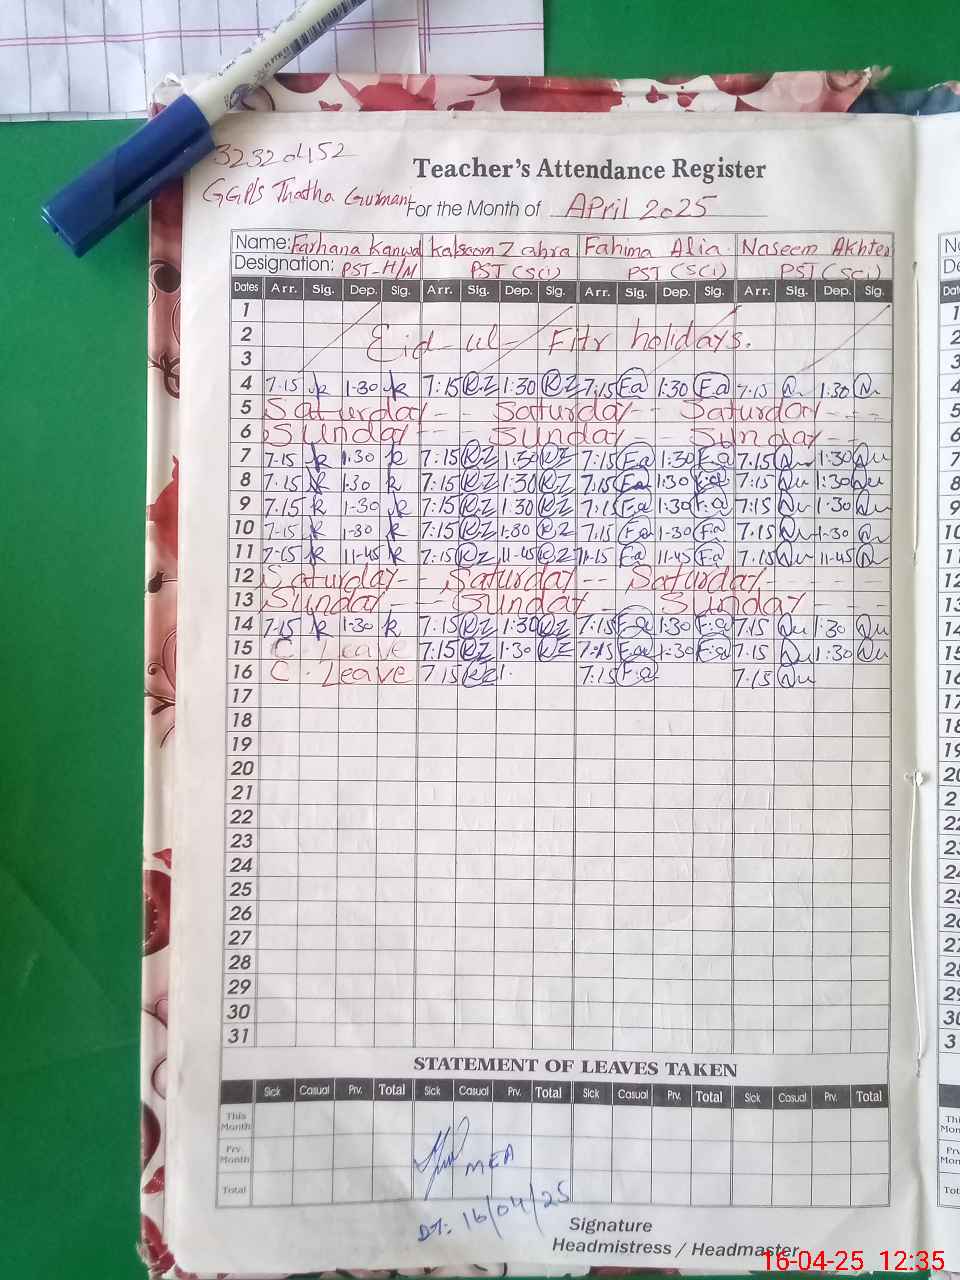 32320452
GGP/s Thatha Gurmani
Teacher's Attendance Register
For the Month of April 2025
Name: Farhana Kanwal Kalsoom Zahra Fahima Alia. Naseem Akhter
Designation: PST-H/M PST (SCI) PST (SCI) PST (SCI)
Dates Arr. Sig. Dep. Sig. Arr. Sig. Dep. Sig. Arr. Sig. Dep. Sig. Arr. Sig. Dep. Sig.
1
2 Eid-ul-Fitr holidays.
3
4 7.15 k 1-30 k 7:15 KZ 1:30 KZ 7:15 Fa 1:30 Fa 7.15 1:30
5 Saturday -- Saturday -- Saturday - - -
6 Sunday - - - Sunday - - - Sunday - -
7 7.15 k 1.30 k 7:15 KZ 1:30 KZ 7:15 F.a 1:30 F.a 7.15 1:30
8 7.15 k 1.30 k 7:15 KZ 1:30 KZ 7:15 F.a 1:30 F.a 7:15 1:30
9 7.15 k 1-30 k 7:15 KZ 1:30 KZ 7:15 F.a 1:30 F:a 7:15 1-30
10 7-15 k 1-30 k 7:15 KZ 1:30 KZ 7.15 Fa 1-30 Fa 7.15 1-30
11 7-15 k 11-45 k 7-15 KZ 11-45 KZ Fa 11.45 Fa 7.15 11-45
12 Saturday - - Saturday - - Saturday - - - -
13 Sunday - - - Sunday - - - Sunday - - -
14 7.15 k 1-30 k 7:15 KZ 1:30 KZ 7:15 F.a 1:30 F.a 7.15 1:30
15 C. Leave 7:15 KZ 1.30 KZ 7:15 F.a 1:30 F.a 7:15 1:30
16 C. Leave 7 15 KZ 1. 7:15 F.a 7.15
17
18
19
20
21
22
23
24
25
26
27
28
29
30
31
STATEMENT OF LEAVES TAKEN
Sick Casual Prv. Total Sick Casual Prv. Total Sick Casual Prv. Total Sick Casual Prv. Total
This Month
Prv Month
Total
MEA
DT: 16/04/25
Signature
Headmistress / Headmaster
16-04-25 12:35